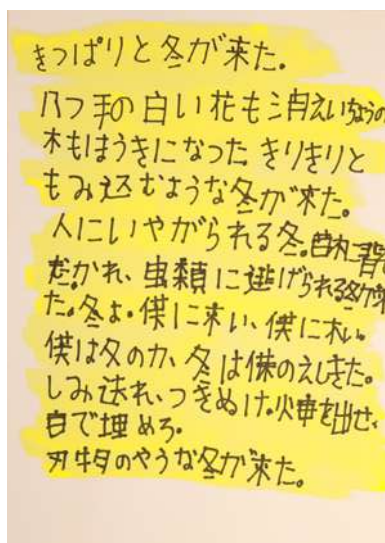 きっぱりと冬が来た。
八つ手の白い花も消えいちょうの
木もほうきになった きりきりと
もみ込むような冬が来た。
人にいやがられる冬。草木に背
だかれ、虫類に逃げられる冬が
た。冬よ。僕に来い、僕に来い。
僕は冬の力、冬は僕のえじきだ。
しみ透れ、つきぬけ。火事を出せ、
白で埋めろ。
刃物のやうな冬が来た。